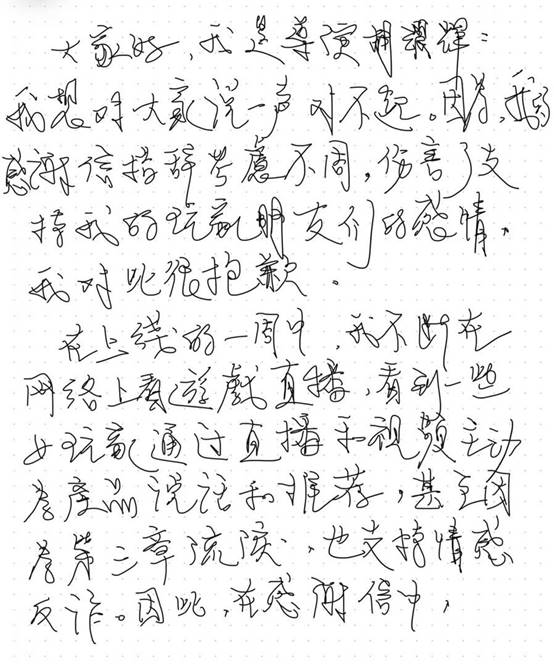 大家好，我是導演胡耀輝：
我想对大家说一声对不起。因为，我的
感谢信措辞考慮不周，伤害了支
持我的玩家朋友们的感情，
我对此很抱歉。
在上线的一周中，我不断在
网络上看遊戲直播，看到一些
女玩家通过直播和视频主动
为產品说话和推荐，甚至因
为第三章流淚，也支持情感
反诈。因此，在感谢信中，